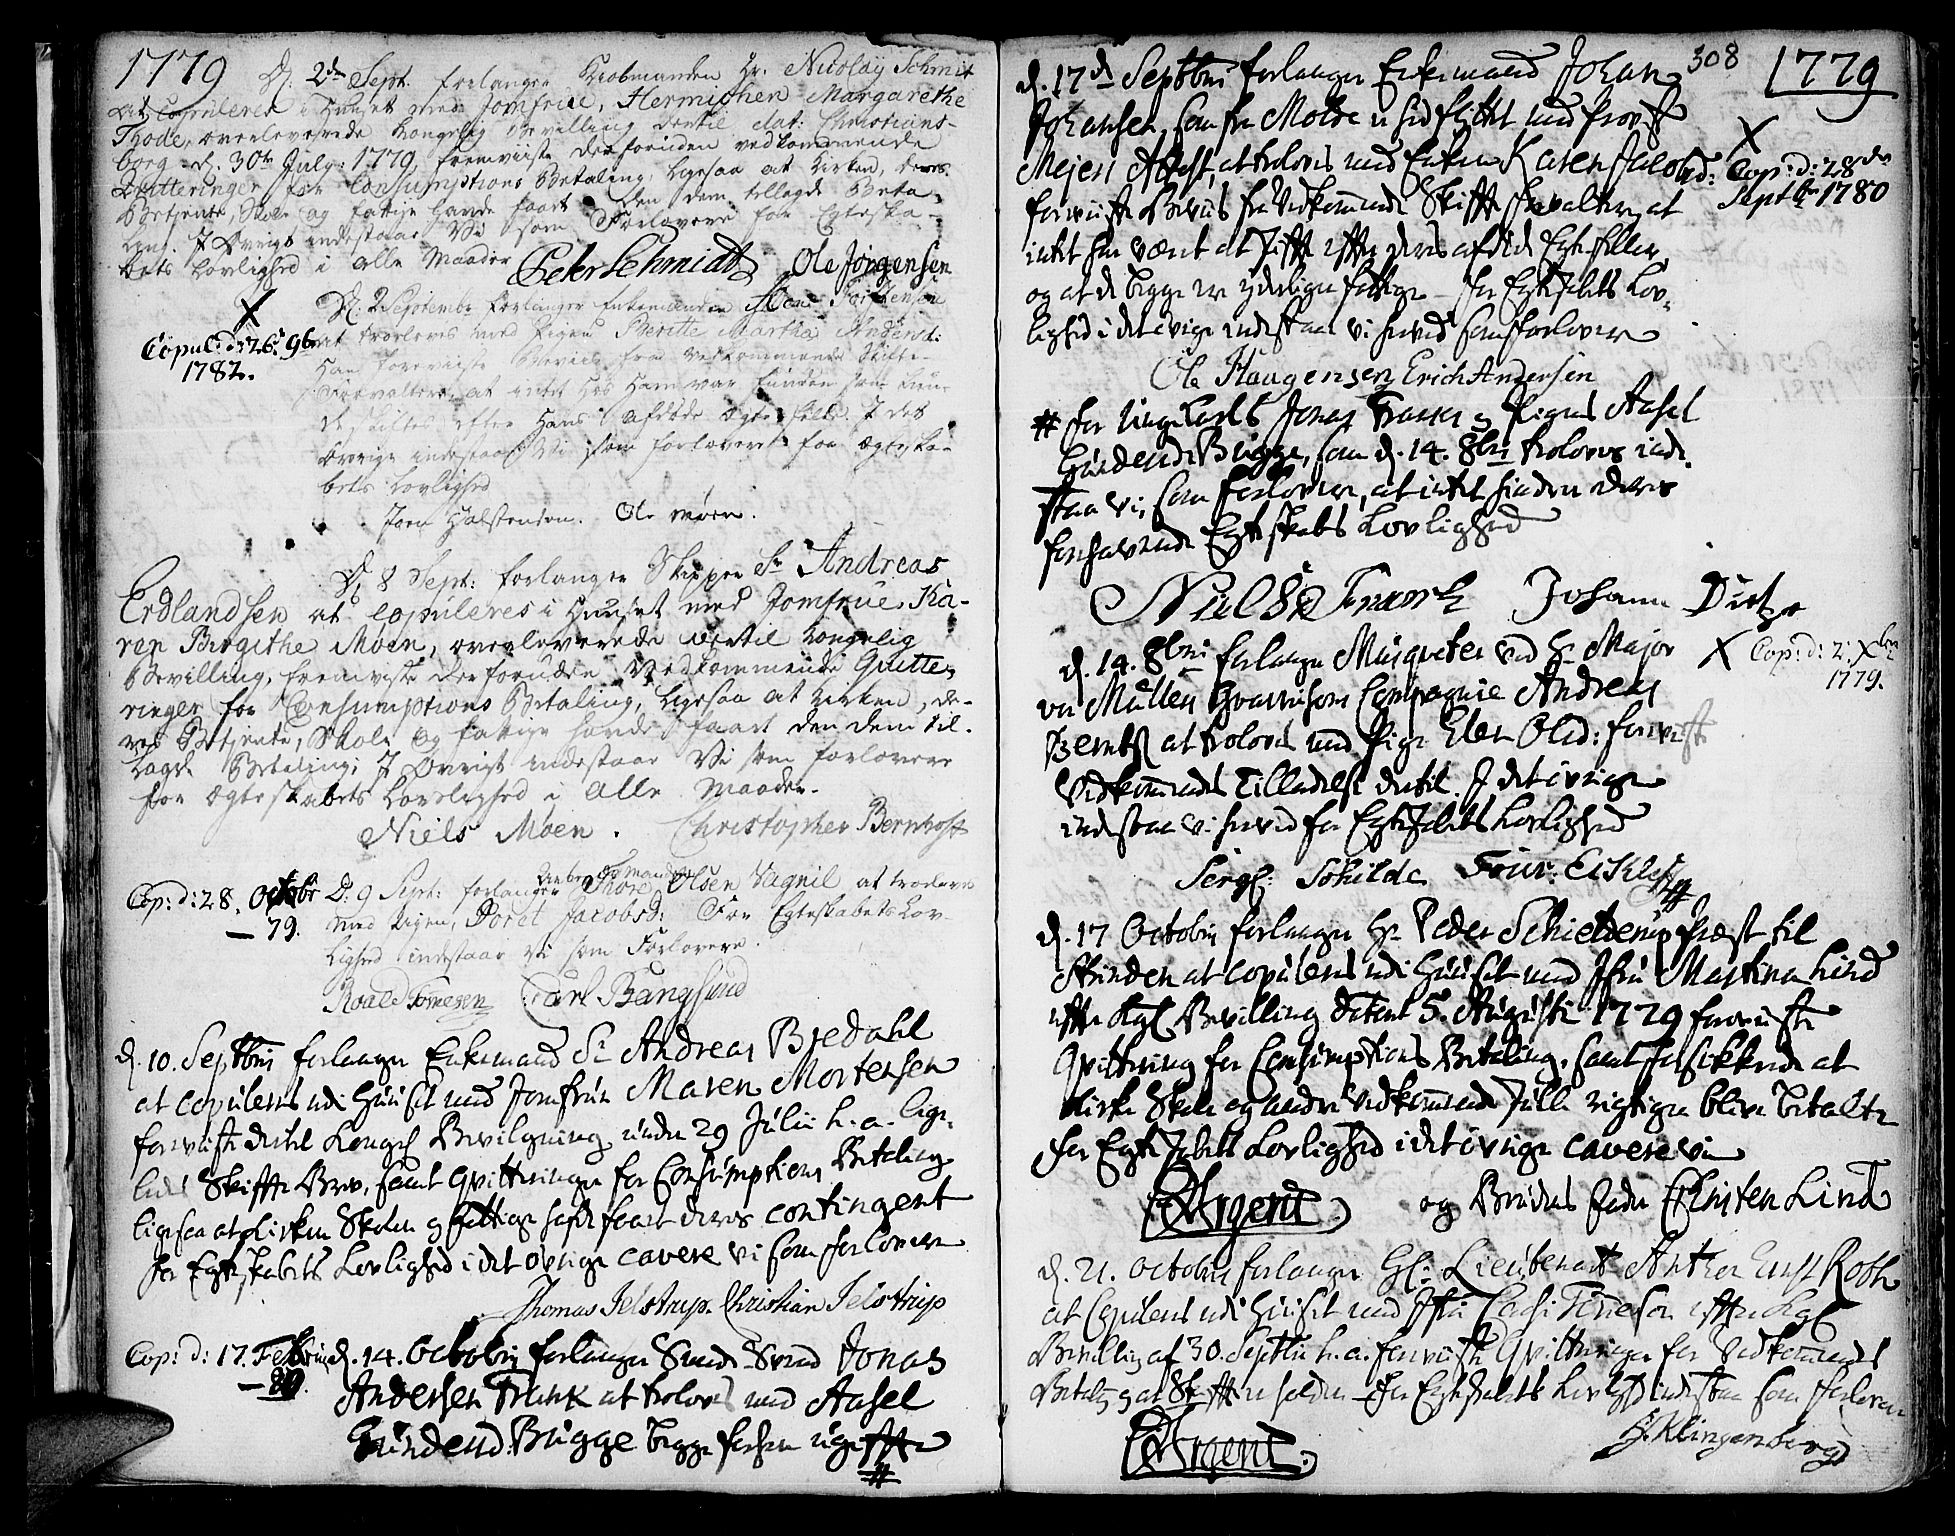 1779
D. 2den Sept. forlanger Kiøbmanden Hr. Nicolay Schmit
at Copuleres i Huuset med Jomfrue, Hermichen Margarethe
Thode, overleverede Kongelig Bevilling dertil dat: Christians-
borg d. 30te July: 1779, fremviiste desforuden vedkommende
Qvitteringer for Consumptions Betaling, ligesaa at Kirken, dens
Betjente, Skole og fattige havde faaet den dem tillagde Beta-
ling. J Øvrigt indestaar Vi som Forlovere for Egteska-
bets Lovlighed i alle Maader
Peter Schmidt Ole Jørgensen
X
Copul: d: 26. 9br
1782.
D. 2 Septembr forlanger Enkemanden
at troloves med Pigen Martha Anders:
Han foreviiste Beviis fra vedkommende Skifte-
Forvaltere, at intet hos Ham var funden som kun-
de skiftes efter Hans afdøde Egtefelle. J det
øvrige indestaar Vi som forlovere for Egteska-
bets Lovlighed
Joen Halstensen. Ole Moen.
D. 8 Sept: forlanger Skipper Sr Andreas
Erdlandsen at copuleres i Huuset med Jomfrue Ka-
ren Birgithe Moen, overleverede dertil Kongelig
Bevilling, fremviste desforuden Vedkommende Qvitte-
ringer for Consumptions Betaling, ligesaa at Kirken, de-
res Betjente, Skole og fattige havde faaet den dem til-
lagde Betaling; J Øvrigt indestaar Vi som forlovere
for Egteskabets Lovlighed i alle Maader.
Niels Moen. Christopher Bernhoft
Cop: d: 28. Octobr
— 79.
D. 9 Sept: forlanger Arbeidsmanden Thore Olsen Vagnil at troloves
med Pigen, Doret Jacobsd: For Egteskabets Lov-
lighed indestaar Vi som Forlovere.
Roald Tomesen Carl Bangsund
d. 10. Septbris forlanger Enkemand Sr Andreas Bredahl
at copuleres udi Huuset med Jomfrue Maren Mortensen
forviiste dertil Kongel Bevilgning under 29 Julii h. a. lige-
ledes Skifte Brev, samt Qvitteringer for Consumptions Betaling
ligesaa at Kirken Skolen og Fattige hafde faaet deres contingent
for Egteskabets Lovlighed i det øvrige cavere vi som forlovere
Thomas Jelstrup. Christian Jelstrup
Cop: d: 17. Febru
— 80.
d. 14. Octobris forlanger Smede Svend Jonas
Andersen Frank at troloves med Aasel
Hundend: Bugge begge forhen ugifte
#
308
1779
d. 17d Septbris forlanger Enkemand Johan
Johansen, som fra Molde er hid flyttet med Provst
Mejeri Attest, at troloves med Enken Karen Jacobsd:
forviiste Beviis fra Vedkommende Skifteforvalter, at
intet har været at Skifte efter deres afdøde Egtefeller,
og at de begge er yderlige fattige — for Egteskabets Lov-
lighed i det øvrige indestaae vi herved som forlovere
Ole Haagensen Erich Andersen
X
Cop: d: 28de
Septbr 1780
# for Unge Karls Jonas Franks og Pigens Aasel
Hundend: Bugge, som d. 14. 8bris troloves inde-
staae vi, som forlovere, at intet hindrer deres
forhavende Egteskabs Lovlighed
Niels Frank Johann Dietz
d. 14. 8bris forlanger Musqveter ved Hr Major
von Møllers Compagnie Andreas
Berntz: at troloves med Pige Elen Olsd: forviiste
Vedkommendes Tilladelse dertil. J det øvrige
indestaae vi herved for Egteskabets Lovlighed
Serg: Schilde Four: Eskles
X Cop: d: 2. Xbr
1779.
d. 17 Octobris forlanger Hr Peder Schieldrup Præst til
Strinden at copuleres udi Huuset med Jfru Martina Lind
efter Kgl Bevilling dateret 5. Augusti 1779 forviiste
Qvittering for Consumptions Betaling, samt forsikkrede at
Kirke Skole og andre vedkommende skulle rigtigen blive betalte
for Egteskabets Lovlighed i det øvrige cavere vi
Argent og Brudens Fader Christen Lind
d. 21. Octobris forlanger Hr: Lieutenant Anther Ernst Roth
at Copuleres udi Huuset med Jfru efter Kgl
Bevilling af 30. Septbr h. a. forviiste Qvitteringer for Vedkommendes
Betaling at Skifte er holden — for Egteskabets Lovlighed indestaae som forlovere
Argent
Klingenberg